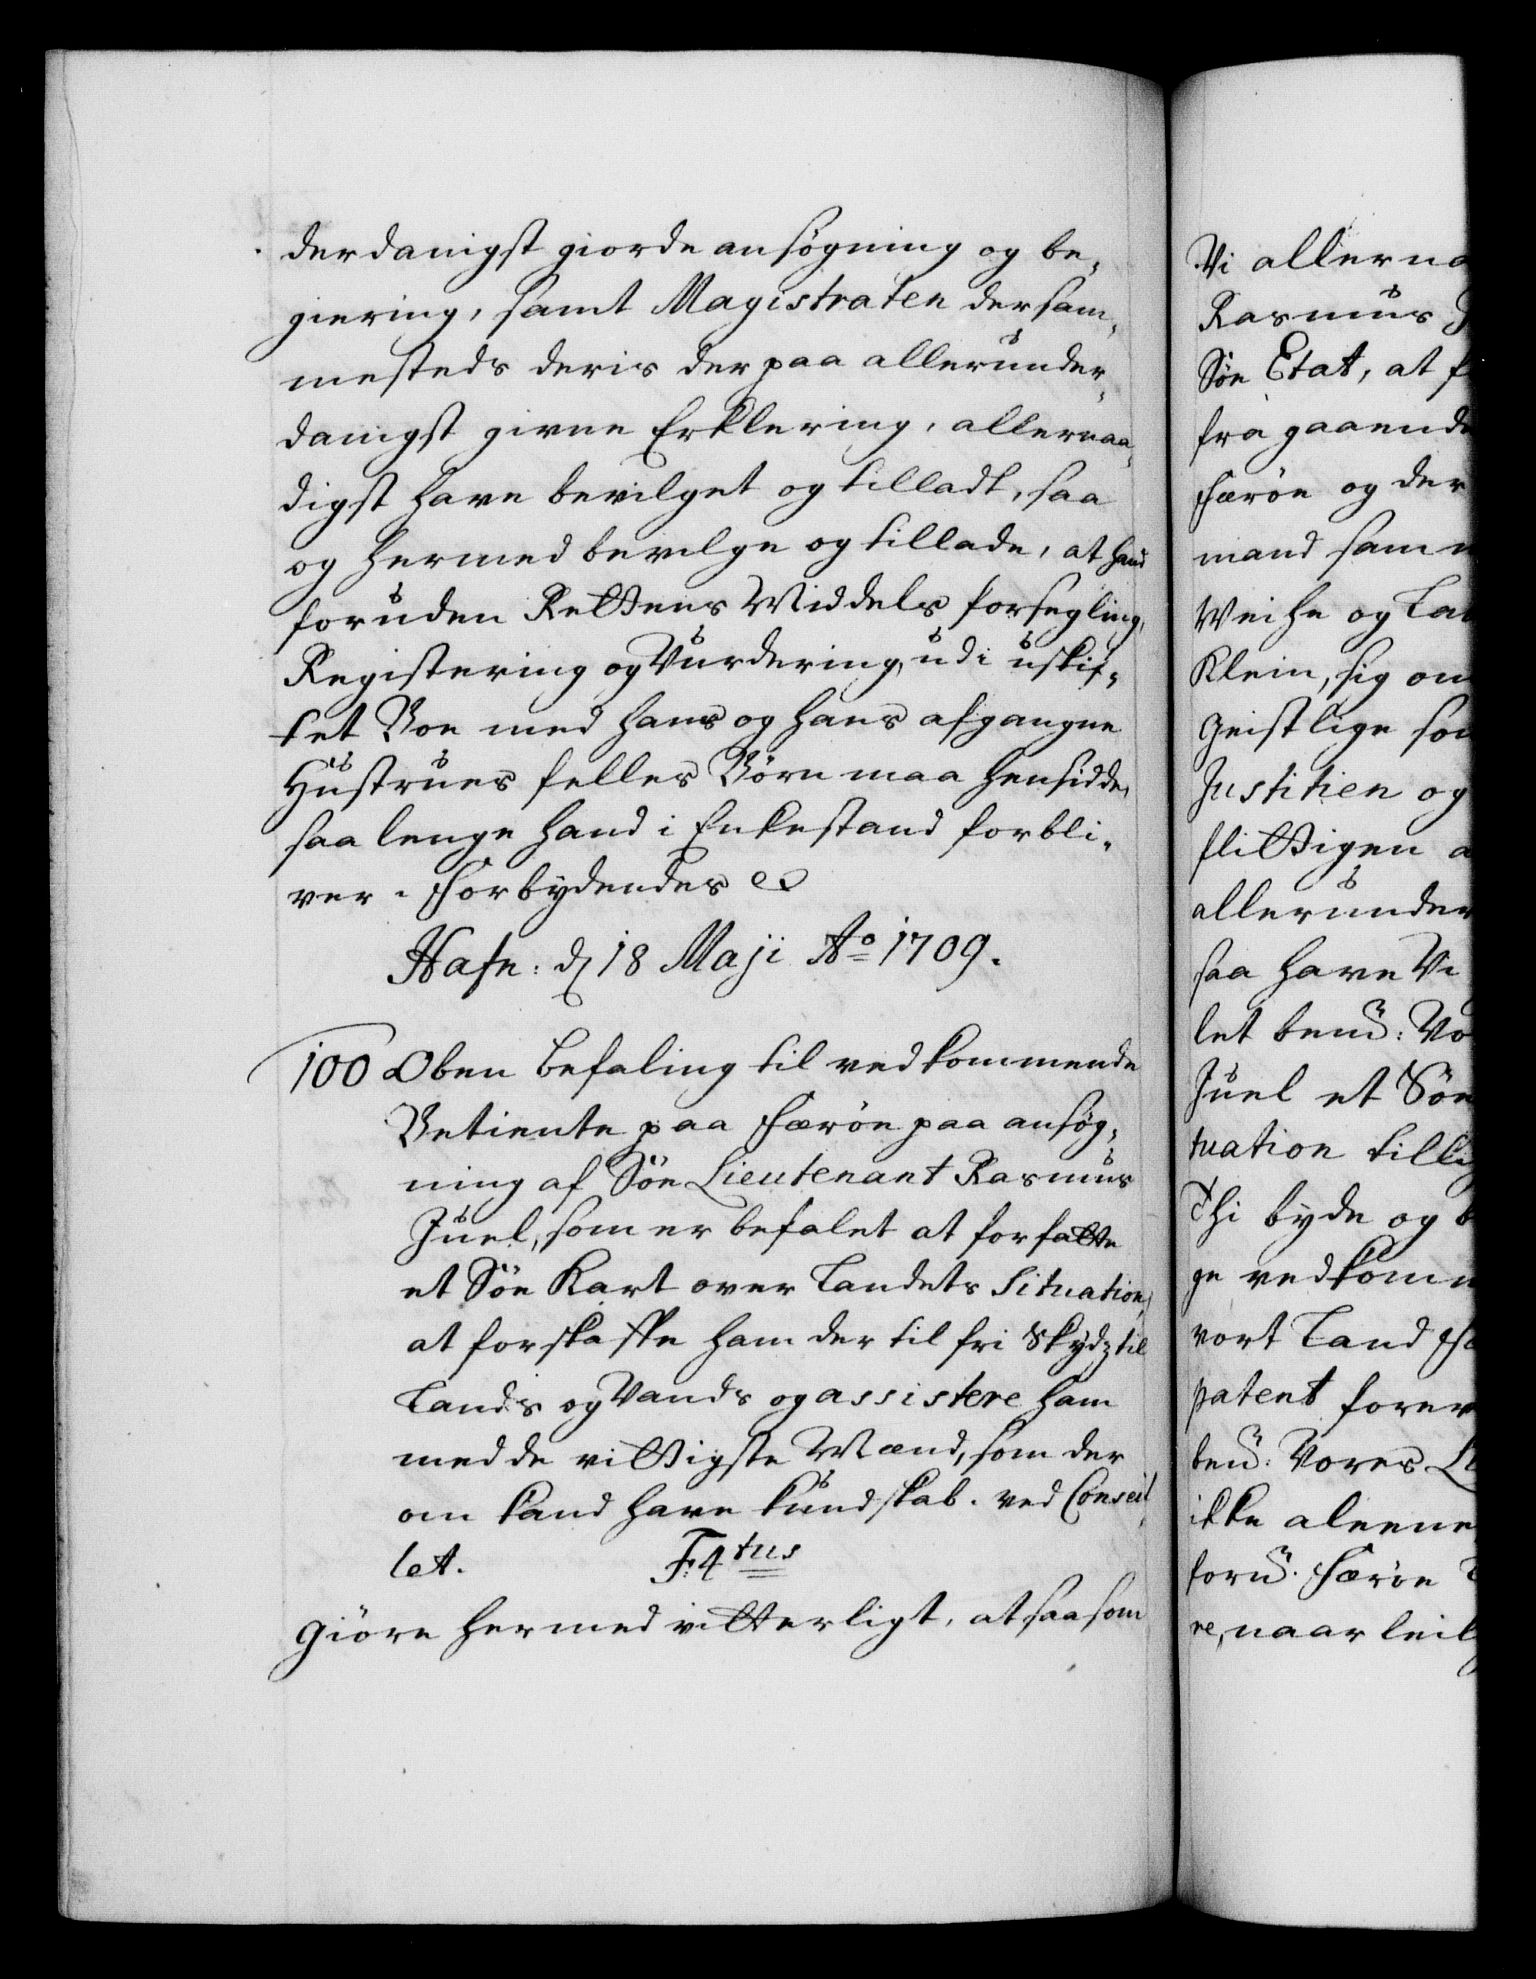 derdanigst giorde ansøgning og be¬
giering, samt Magistraten dersam¬
mesteds deris der paa allerunder¬
danigst givne Erklering, allernaa¬
digst have bevilget og tilladt, saa
og hermed bevilge og tillade, at hand
foruden Rettens Middels forsegling,
Registering og Vurdering, udi uskif¬
tet Boe med hans og hans afgangne
Hustrues felles Børn maa hensidde,
saa lenge hand i Enkestand forbli¬
ver. Forbydendes
Hafn: d 18 Maji Ao 1709.
100 Oben befaling til vedkommende
Betiente paa Færöe paa ansøg¬
ning af Söe Lieutenant Rasmus
Juel, som er befalet at forfatte
et Söe Kart over Landets Situation,
at forskaffe ham der til fri Skydz til
Lands og Vands og assistere ham
med de vittigste Mænd, som der
om kand have kundskab. ved Conseil
let. F:4tus
Giöre hermed vitterligt, at saasom
Vi allerna
Rasmus J
Söe Etat, at f
fra gaaende
Færöe og der
mand sam
Weihe og Lan
Klein, sig om
Geistlige som
Justitien og
flittigen a
allerunder
saa have Vi
let bemt: Vo
Juel et Söe
tuation tillig
Thi byde og b
ge vedkomm
vort Land
patent forev
bemt: Vores Li
ikke aleene
fornt. Færöe
re, naar leil